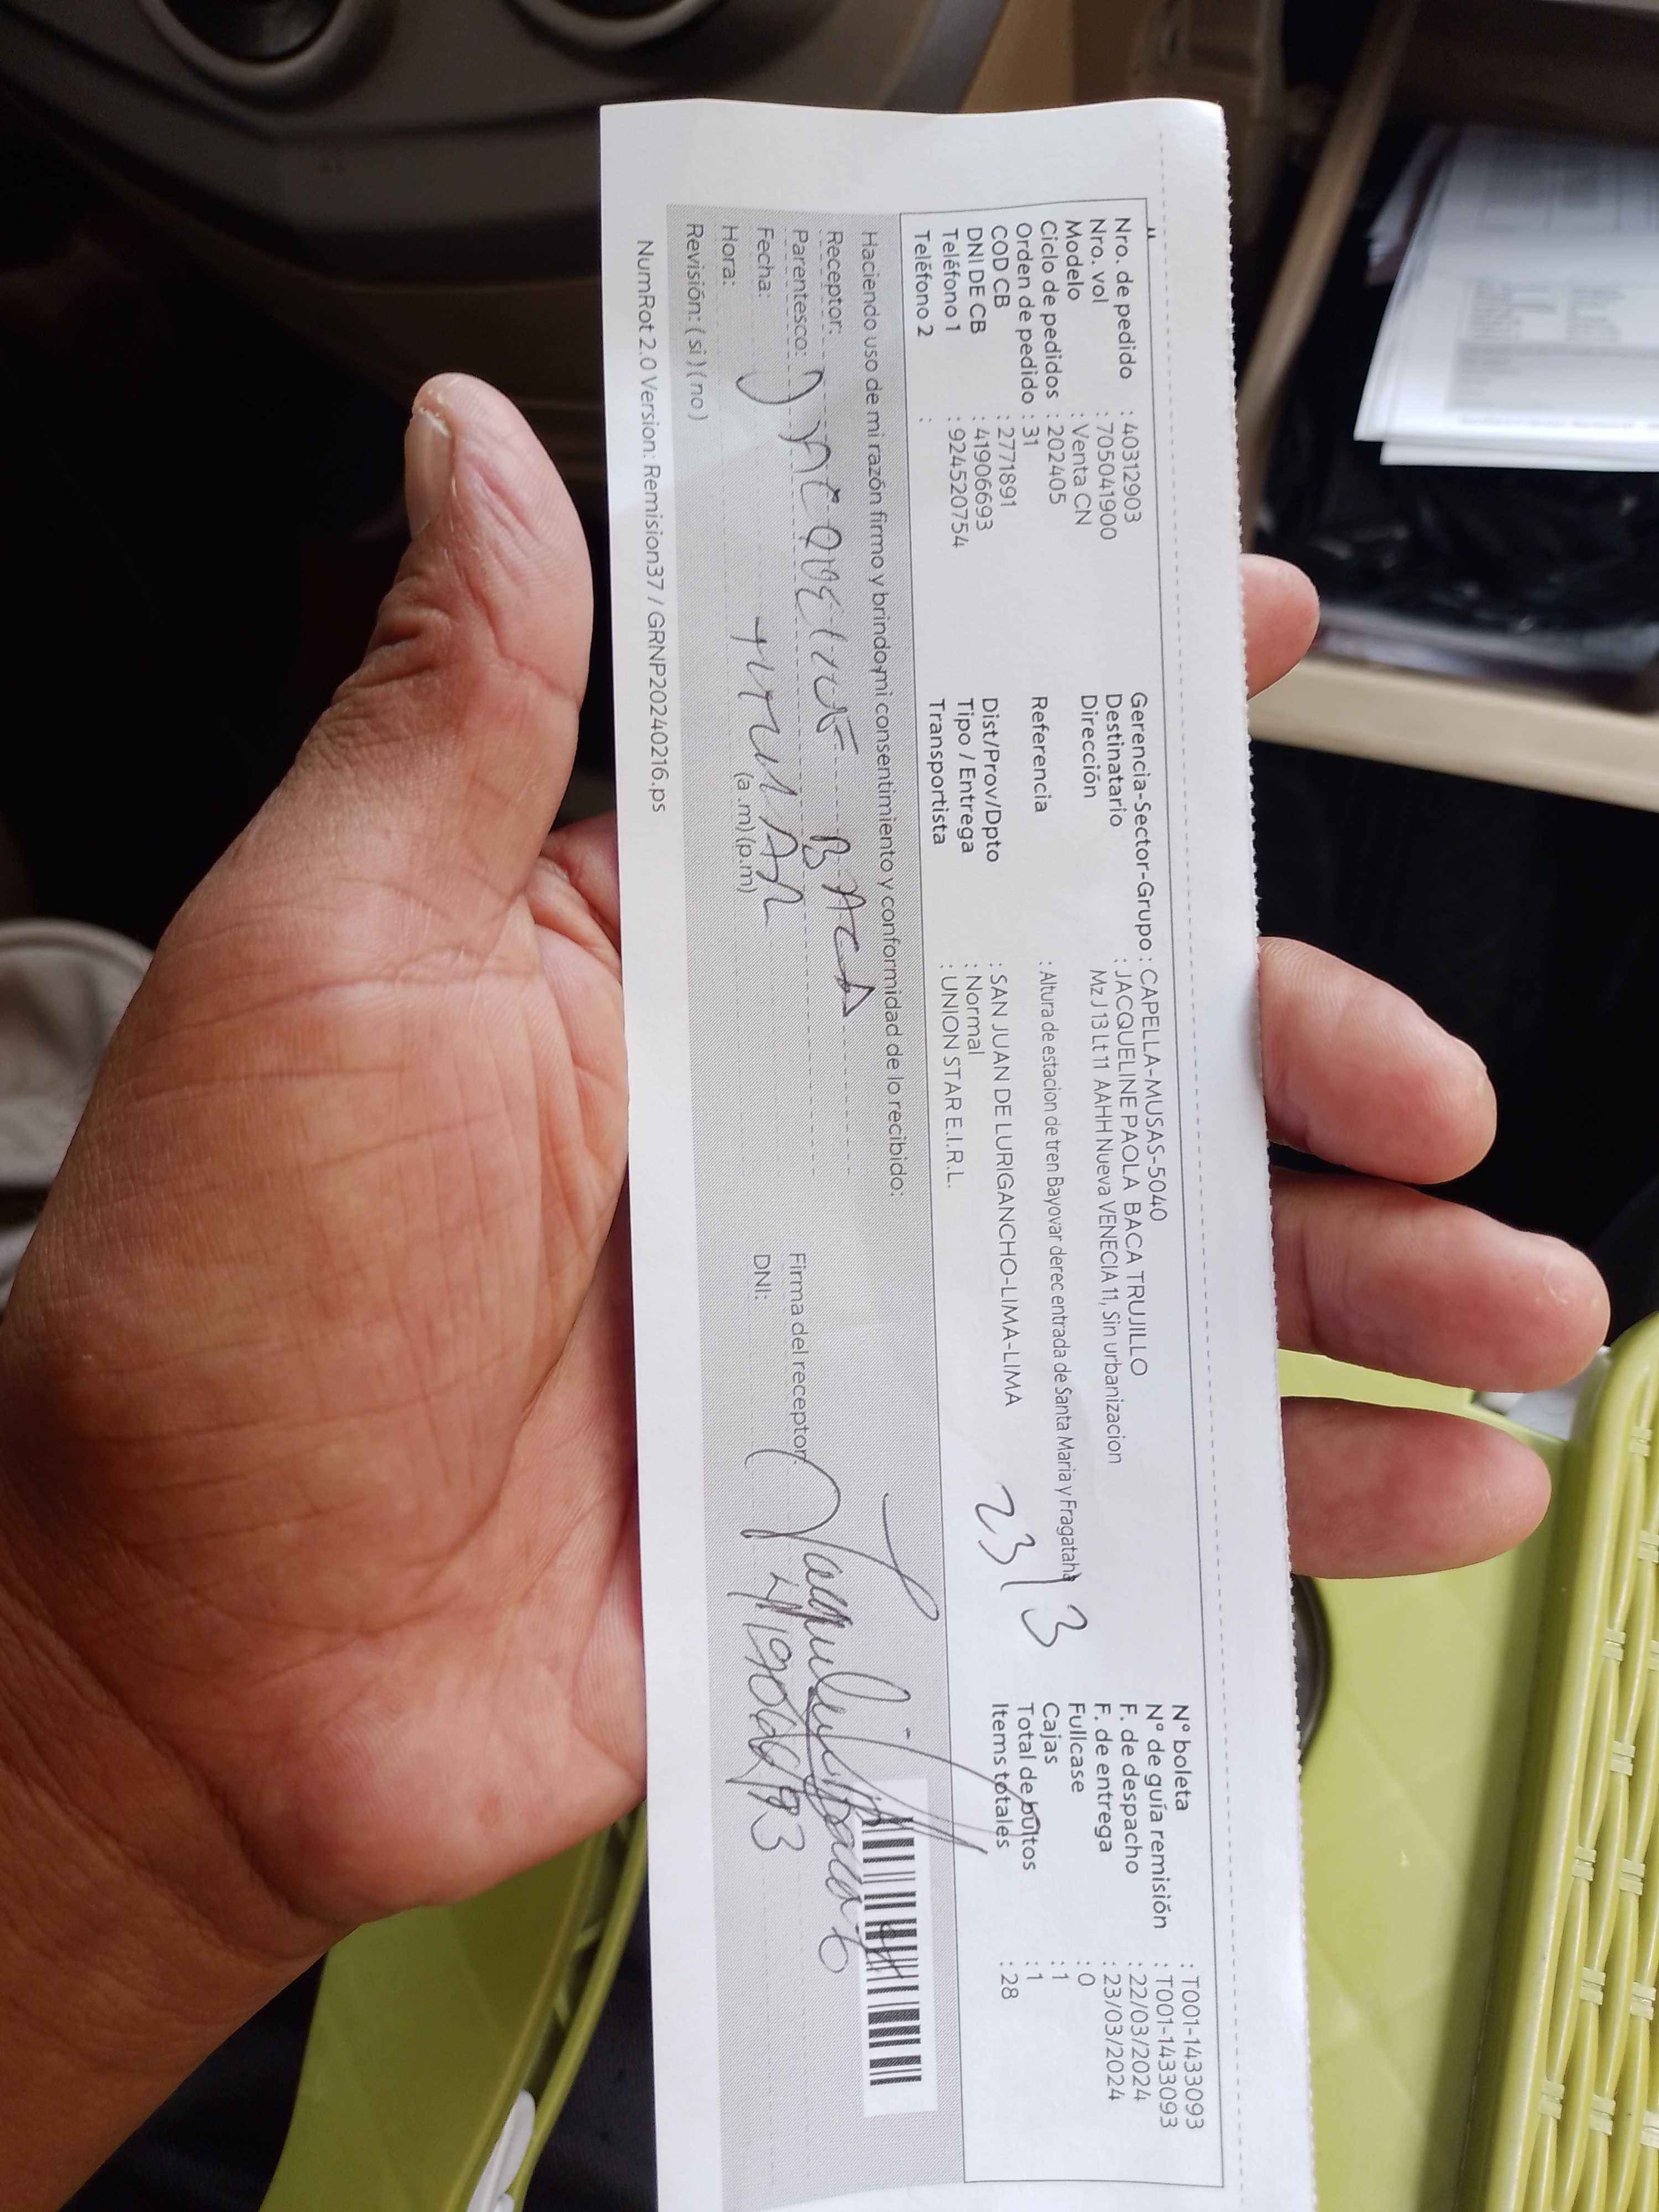 Nro. de pedido : 40312903
Nro. vol : 705041900
Modelo : Venta CN
Ciclo de pedidos : 202405
Orden de pedido : 31
COD CB : 2771891
DNI DE CB : 41906693
Teléfono 1 : 924520754
Teléfono 2 :
Gerencia-Sector-Grupo : CAPELLA-MUSAS-5040
Destinatario : JACQUELINE PAOLA BACA TRUJILLO
Dirección Mz J 13 Lt 11 AAHH Nueva VENECIA 11, Sin urbanizacion
Referencia : Altura de estacion de tren Bayovar derec entrada de Santa Maria y Fragatah
Dist/Prov/Dpto : SAN JUAN DE LURIGANCHO-LIMA-LIMA
Tipo / Entrega : Normal
Transportista : UNION STAR E.I.R.L.
23/3
N° boleta : T001-1433093
N° de guía remisión : T001-1433093
F. de despacho : 22/03/2024
F. de entrega : 23/03/2024
Fullcase : 0
Cajas : 1
Total de bultos : 1
Items totales : 28
Haciendo uso de mi razón firmo y brindo mi consentimiento y conformidad de lo recibido:
Receptor: JACQUELINE BACA
Parentesco: TITULAR
Fecha:
Hora: (a .m) (p.m)
Revisión: ( si ) ( no )
Firma del receptor:
DNI: 41906693
NumRot 2.0 Version: Remision37 / GRNP20240216.ps